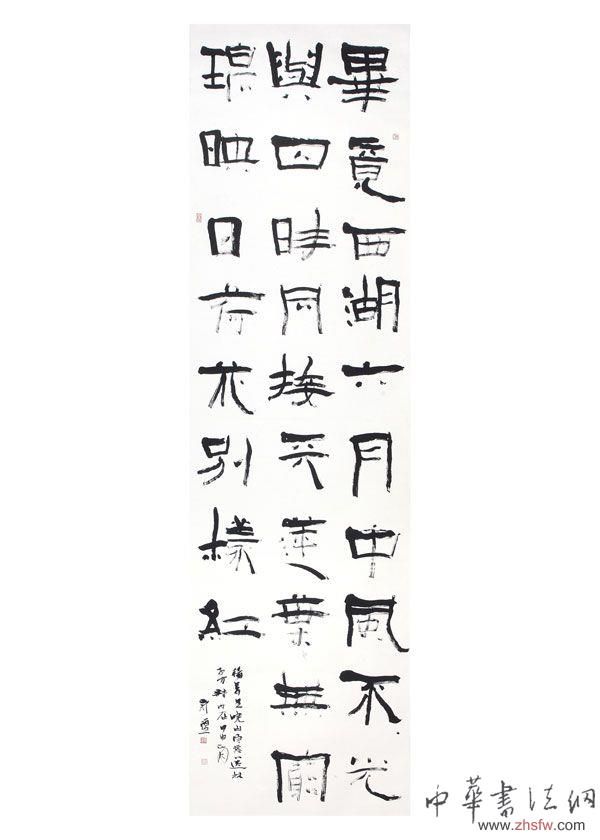 畢竟西湖六月中風不光
與四時同接天蓮葉無窮
映日荷花別樣紅
楊萬里曉出淨慈送林
子方詩
中華書法網
www.zhsfw.com